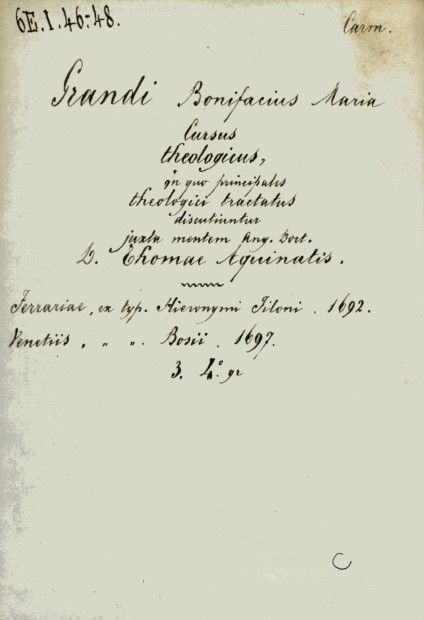 6E.I.46-48.
Carm.
Grandi Bonifacius Maria
Cursus
theologicus,
in quo principales
theologici tractatus
discutiuntur
juxta mentem Ang. Doct.
D. Thomae Aquinatis.
Ferrariae, ex typ. Hieronymi Filoni. 1692.
Venetiis, " ". Bosii. 1697.
3. 4.° gr
C